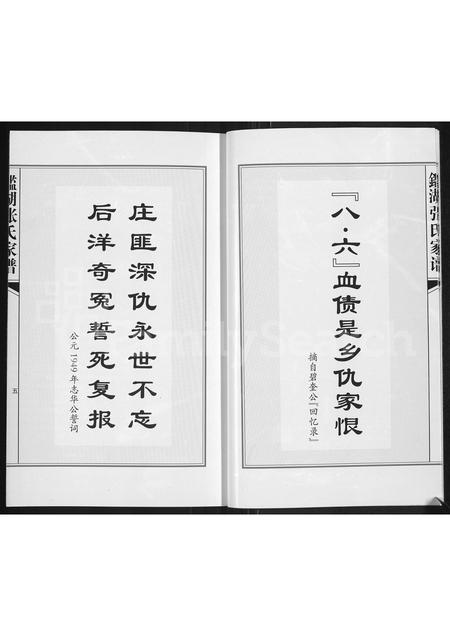 鑑湖张氏家谱
『八·六』血债是乡仇家恨
摘自碧奎公『回忆录』
庄匪深仇永世不忘
后洋奇冤誓死复报
公元1949年志华公誓词
鑑湖张氏家谱
五
FamilySearch